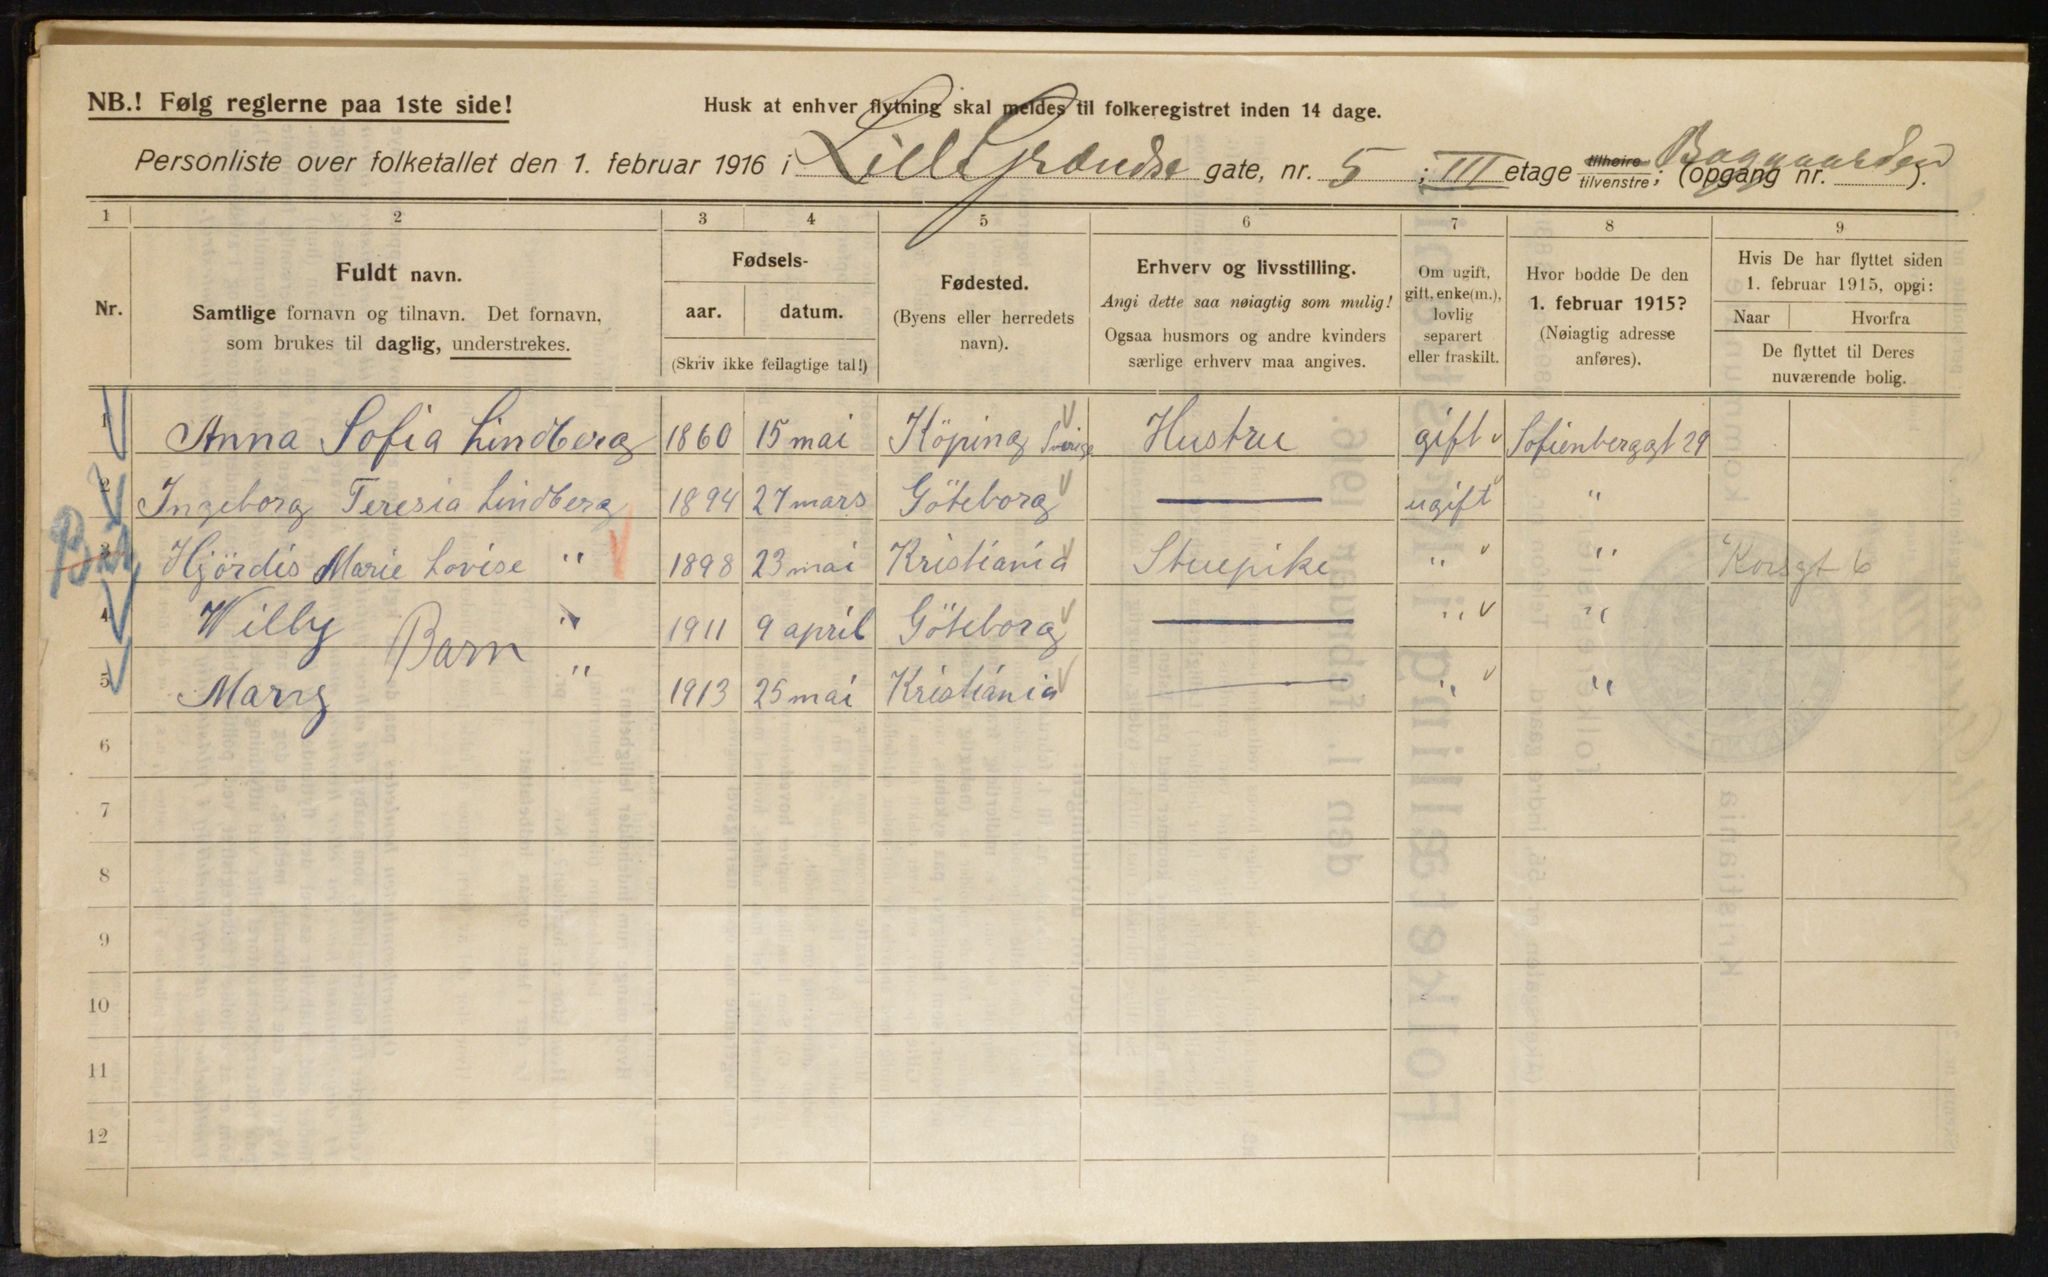 NB.! Følg reglerne paa 1ste side!
Husk at enhver flytning skal meldes til folkeregistret inden 14 dage.
Personliste over folketallet den 1. februar 1916 i Lille Grændse gate, nr. 5 ; III etage tilhøire tilvenstre; (opgang nr. ). Baggaarden
1 2 3 4 5 6 7 8 9
Nr.
Fuldt navn.
Samtlige fornavn og tilnavn. Det fornavn,
som brukes til daglig, understrekes.
Fødsels-
aar. datum.
(Skriv ikke feilagtige tal!)
Fødested.
(Byens eller herredets
navn).
Erhverv og livsstilling.
Angi dette saa nøiagtig som mulig!
Ogsaa husmors og andre kvinders
særlige erhverv maa angives.
Om ugift,
gift, enke(m.),
lovlig
separert
eller fraskilt.
Hvor bodde De den
1. februar 1915?
(Nøiagtig adresse
anføres).
Hvis De har flyttet siden
1. februar 1915, opgi:
Naar Hvorfra
De flyttet til Deres
nuværende bolig.
1 Anna Sofia Lindberg 1860 15 mai Köping Sverige Hustru gift Sofienberggt 29
2 Ingeborg Teresia Lindberg 1894 27 mars Göteborg — ugift "
3 Hjördis Marie Lovise " 1898 23 mai Kristiania Stuepike " " Korsgt 6
4 Willy Barn " 1911 9 april Göteborg — " "
5 Marry " 1913 25 mai Kristiania — " "
6
7
8
9
10
11
12